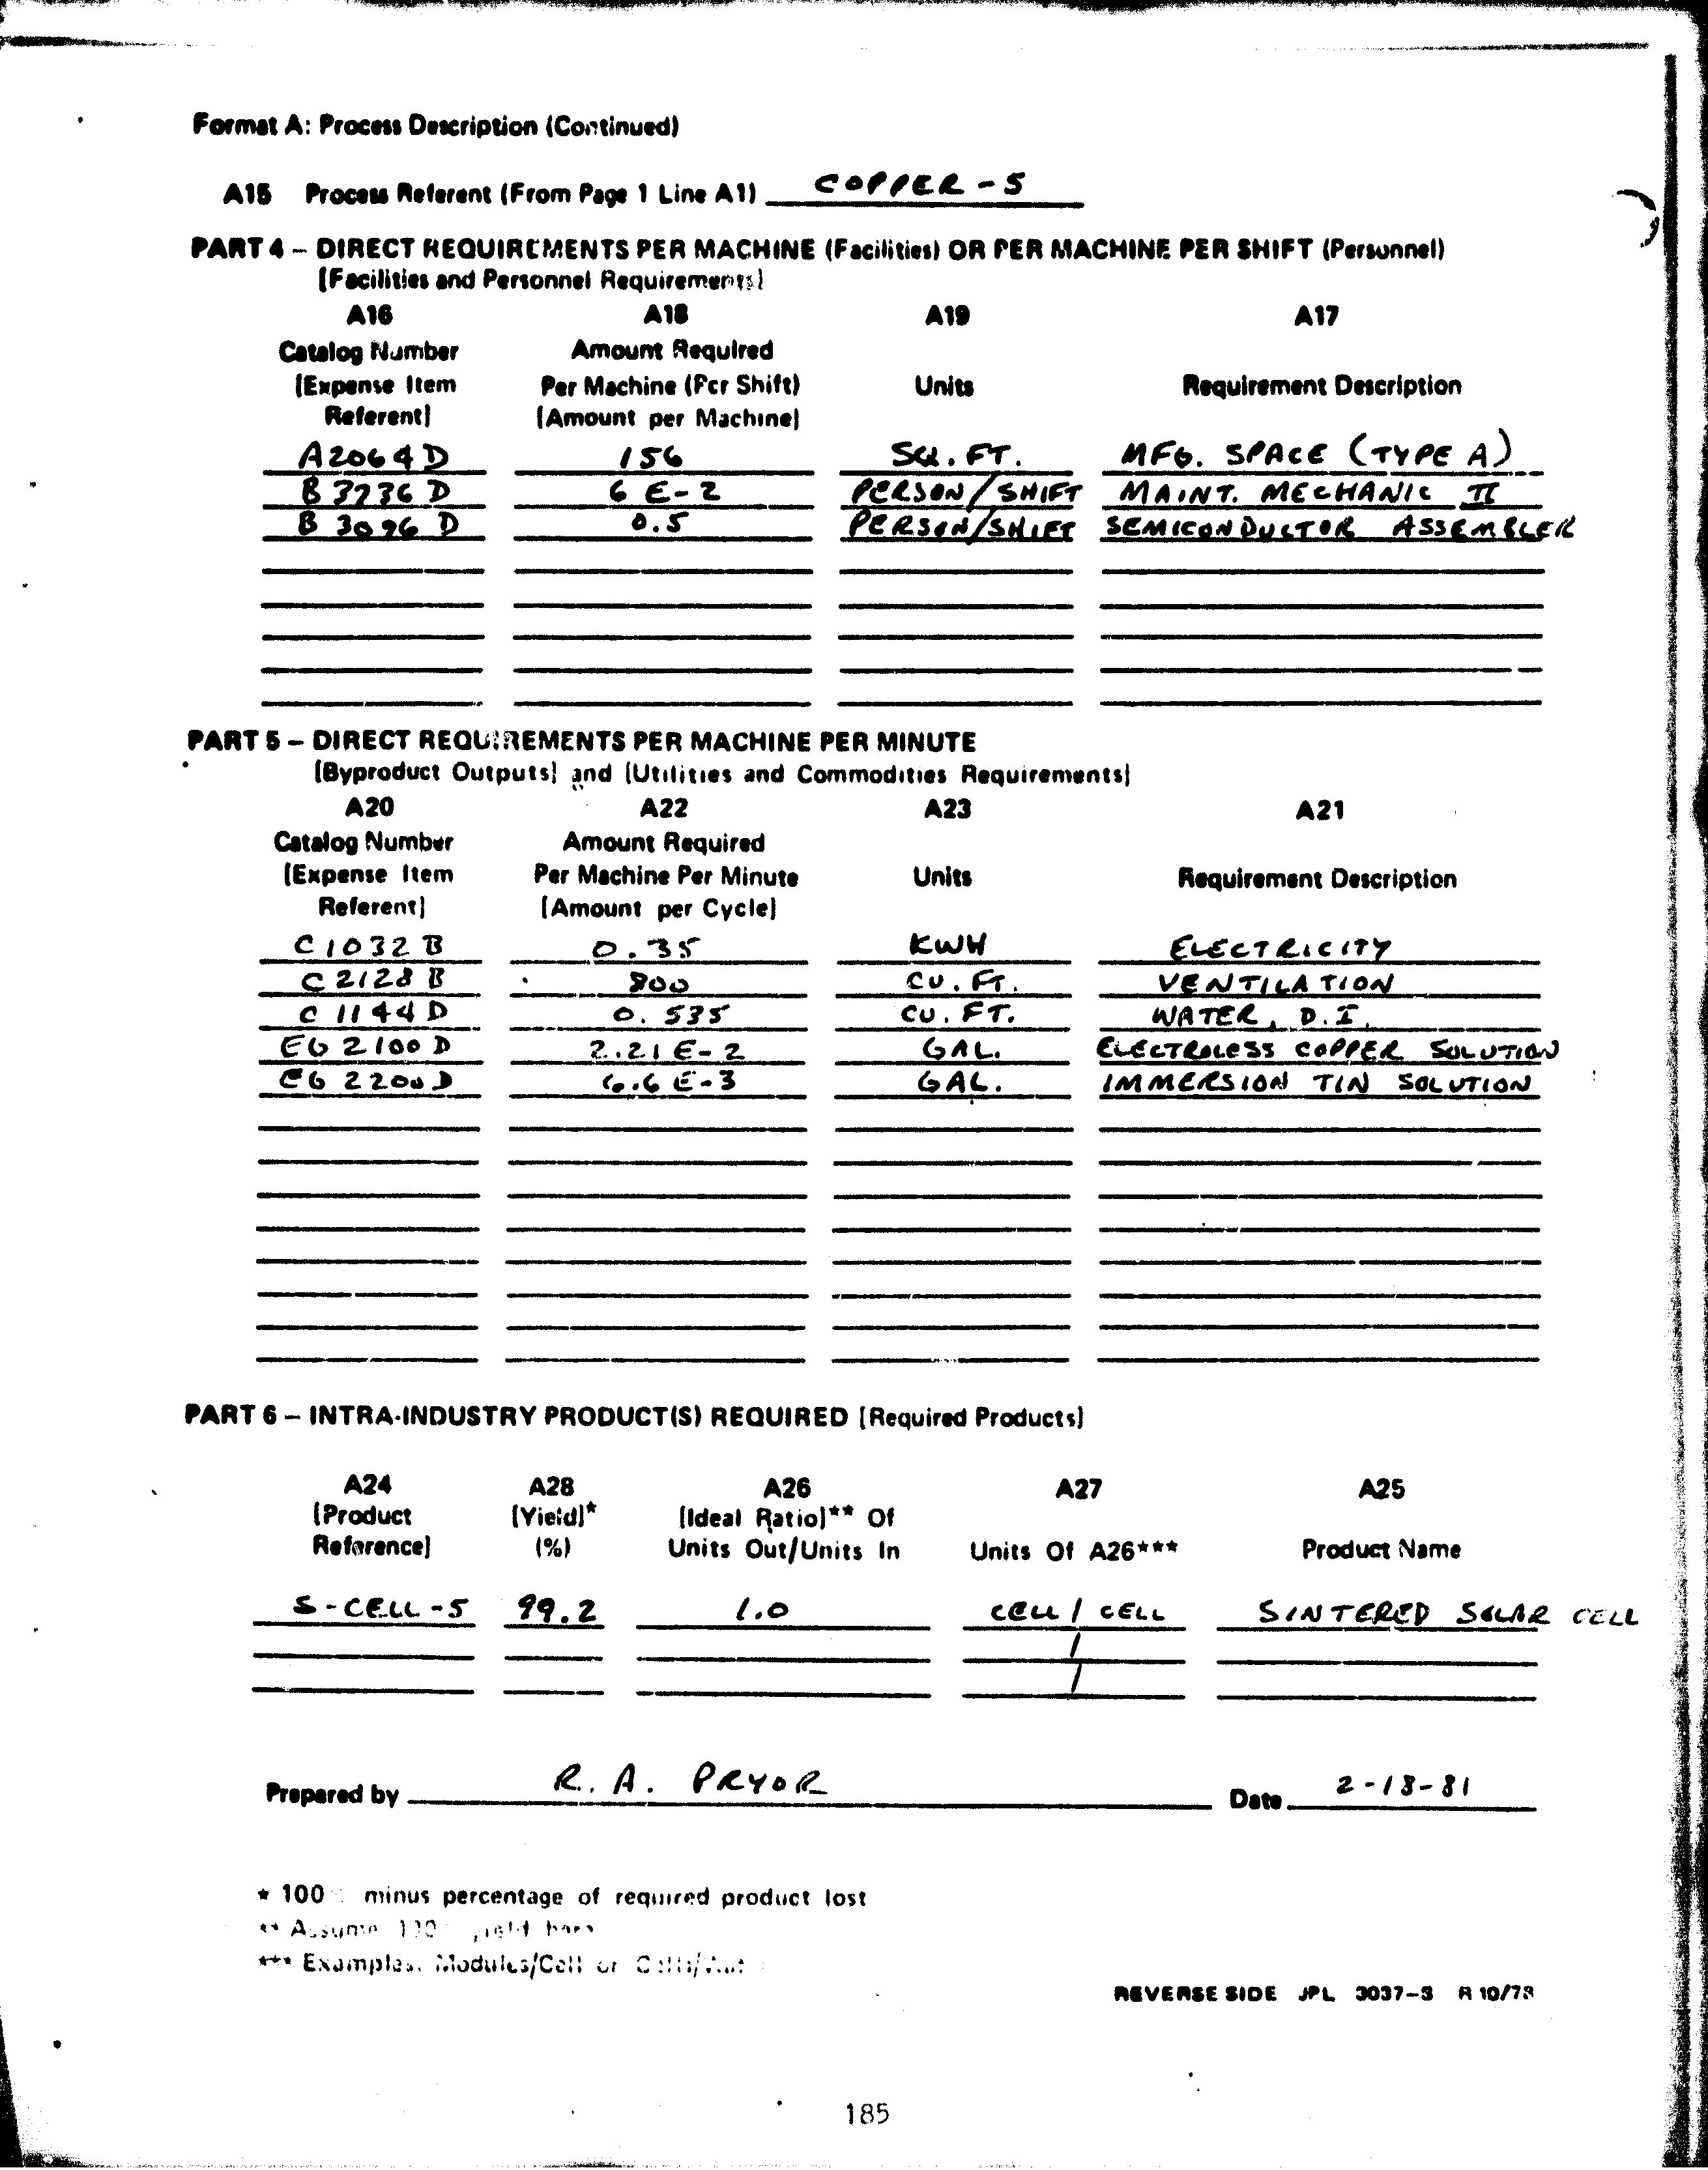 Format A: Process Description (Continued)
A15 Process Referent (From Page 1 Line A1) COPPER-5
PART 4 – DIRECT REQUIREMENTS PER MACHINE (Facilities) OR PER MACHINE PER SHIFT (Personnel)
[Facilities and Personnel Requirements]
A16 A18 A19 A17
Catalog Number Amount Required
[Expense Item Per Machine (Per Shift) Units Requirement Description
Referent] [Amount per Machine]
A2064D 156 SQ. FT. MFG. SPACE (TYPE A)
B3736D 6 E-2 PERSON/SHIFT MAINT. MECHANIC II
B3096D 0.5 PERSON/SHIFT SEMICONDUCTOR ASSEMBLER
PART 5 – DIRECT REQUIREMENTS PER MACHINE PER MINUTE
[Byproduct Outputs] and [Utilities and Commodities Requirements]
A20 A22 A23 A21
Catalog Number Amount Required
[Expense Item Per Machine Per Minute Units Requirement Description
Referent] [Amount per Cycle]
C1032B 0.35 KWH ELECTRICITY
C2128B 800 CU. FT. VENTILATION
C1144D 0.535 CU. FT. WATER, D.I.
EG2100D 2.21E-2 GAL. ELECTROLESS COPPER SOLUTION
EG2200D 6.6E-3 GAL. IMMERSION TIN SOLUTION
PART 6 – INTRA-INDUSTRY PRODUCT(S) REQUIRED [Required Products]
A24 A28 A26 A27 A25
[Product [Yield]* [Ideal Ratio]** Of
Reference] (%) Units Out/Units In Units Of A26*** Product Name
S-CELL-5 99.2 1.0 CELL / CELL SINTERED SOLAR CELL
/
/
Prepared by R. A. PRYOR Date 2-18-81
* 100 minus percentage of required product lost
** Assume yield here
*** Examples: Modules/Cell or
REVERSE SIDE JPL 3037-S R 10/78
185